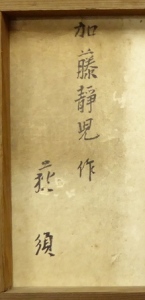 加藤靜児作
萩須